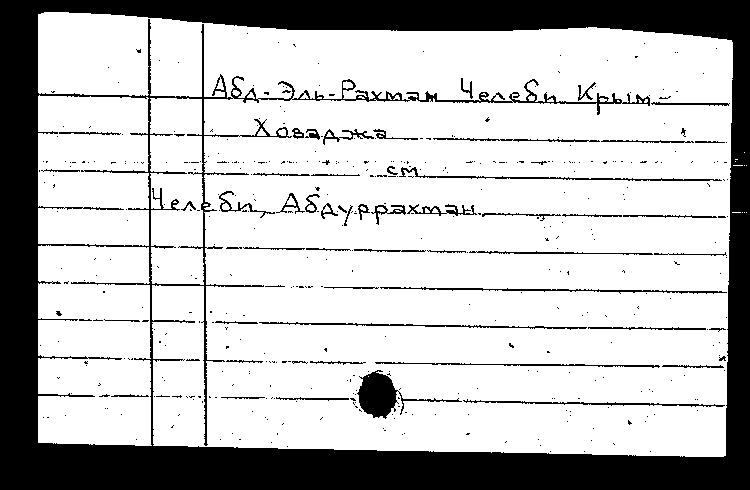 Абд-Эль-Рахман Челеби Крым-
Ховаджа
см
Челеби, Абдуррахман.